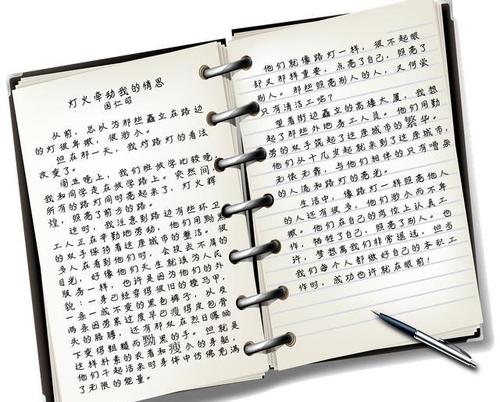 灯火牵动我的情思
国仁昭
从前，总以为那些矗立在路边
的灯很卑微，很渺小。
但在那一天，我对路灯的看法
改变了。
周五晚上，我们班放学比较晚，
我和同学走在放学路上。突然间，
所有的路灯同时亮起来了，灯火辉
煌，照亮了前方的路。
这时，我注意到路边有些环卫
工人正在辛勤地劳动，他们用黝黑
的双手保持着这座城市的整洁。很
多人在看到他们时，会投去不屑的
目光，好像他们天生就该为人民
服务一样，也许是因为他们的外
貌：一身已经穿得很旧的橙马甲，
一条一成不变的黑色裤子，以及
两条因劳累过度早已瘦得皮包骨
头的胳膊，还有那双在烈日曝晒
下变得粗糙而黝黑的手。但就是
这样朴素的衣着和瘦小的身躯，
他们干起活来时身体中仿佛充满
了无限的能量。
他们就像路灯一样，很不起眼
却又那样重要，点亮了自己，照亮了
别人。那些照亮别人的人，又何尝
只有清洁工呢？
望着街边矗立的高楼大厦，我想
起了那些外地务工人员。他们用勤
劳的双手筑起了这座城市的繁华，
他们从十几岁起就来到了这座城市，
无依无靠，与他们相伴的只有嘈杂
的人流和路灯的亮光。
生活中，像路灯一样照亮他人
的人还有很多，他们渺小而不卑
微。他们在自己的岗位上认真工
作，牺牲了自己，照亮了别人。也
许，梦想离我们非常遥远，但当
我们每个人都做好自己的本职工
作时，成功也许就在眼前！